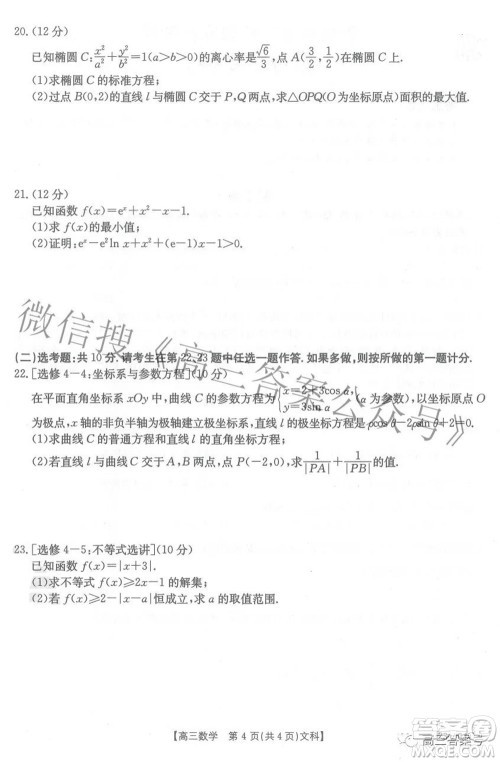 20.(12分)
已知椭圆C:x²/a²+y²/b²=1(a>b>0)的离心率是√6/3,点A(3/2,1/2)在椭圆C上.
(1)求椭圆C的标准方程;
(2)过点B(0,2)的直线l与椭圆C交于P,Q两点,求△OPQ(O为坐标原点)面积的最大值.
21.(12分)
已知函数f(x)=eˣ+x²-x-1.
(1)求f(x)的最小值;
(2)证明:eˣ-e²ln x+x²+(e-1)x-1>0.
(二)选考题:共10分.请考生在第22,23题中任选一题作答.如果多做,则按所做的第一题计分.
22.[选修4-4:坐标系与参数方程](10分)
在平面直角坐标系xOy中,曲线C的参数方程为{x=2+3cos α, y=3sin α (α为参数),以坐标原点O
为极点,x轴的非负半轴为极轴建立极坐标系,直线l的极坐标方程是ρcos θ-2ρsin θ+2=0.
(1)求曲线C的普通方程和直线l的直角坐标方程;
(2)若直线l与曲线C交于A,B两点,点P(-2,0),求1/|PA|+1/|PB|的值.
23.[选修4-5:不等式选讲](10分)
已知函数f(x)=|x+3|.
(1)求不等式f(x)≥2x-1的解集;
(2)若f(x)≥2-|x-a|恒成立,求a的取值范围.
【高三数学 第4页(共4页)文科】
微信搜《高三答案公众号》
高三答案号